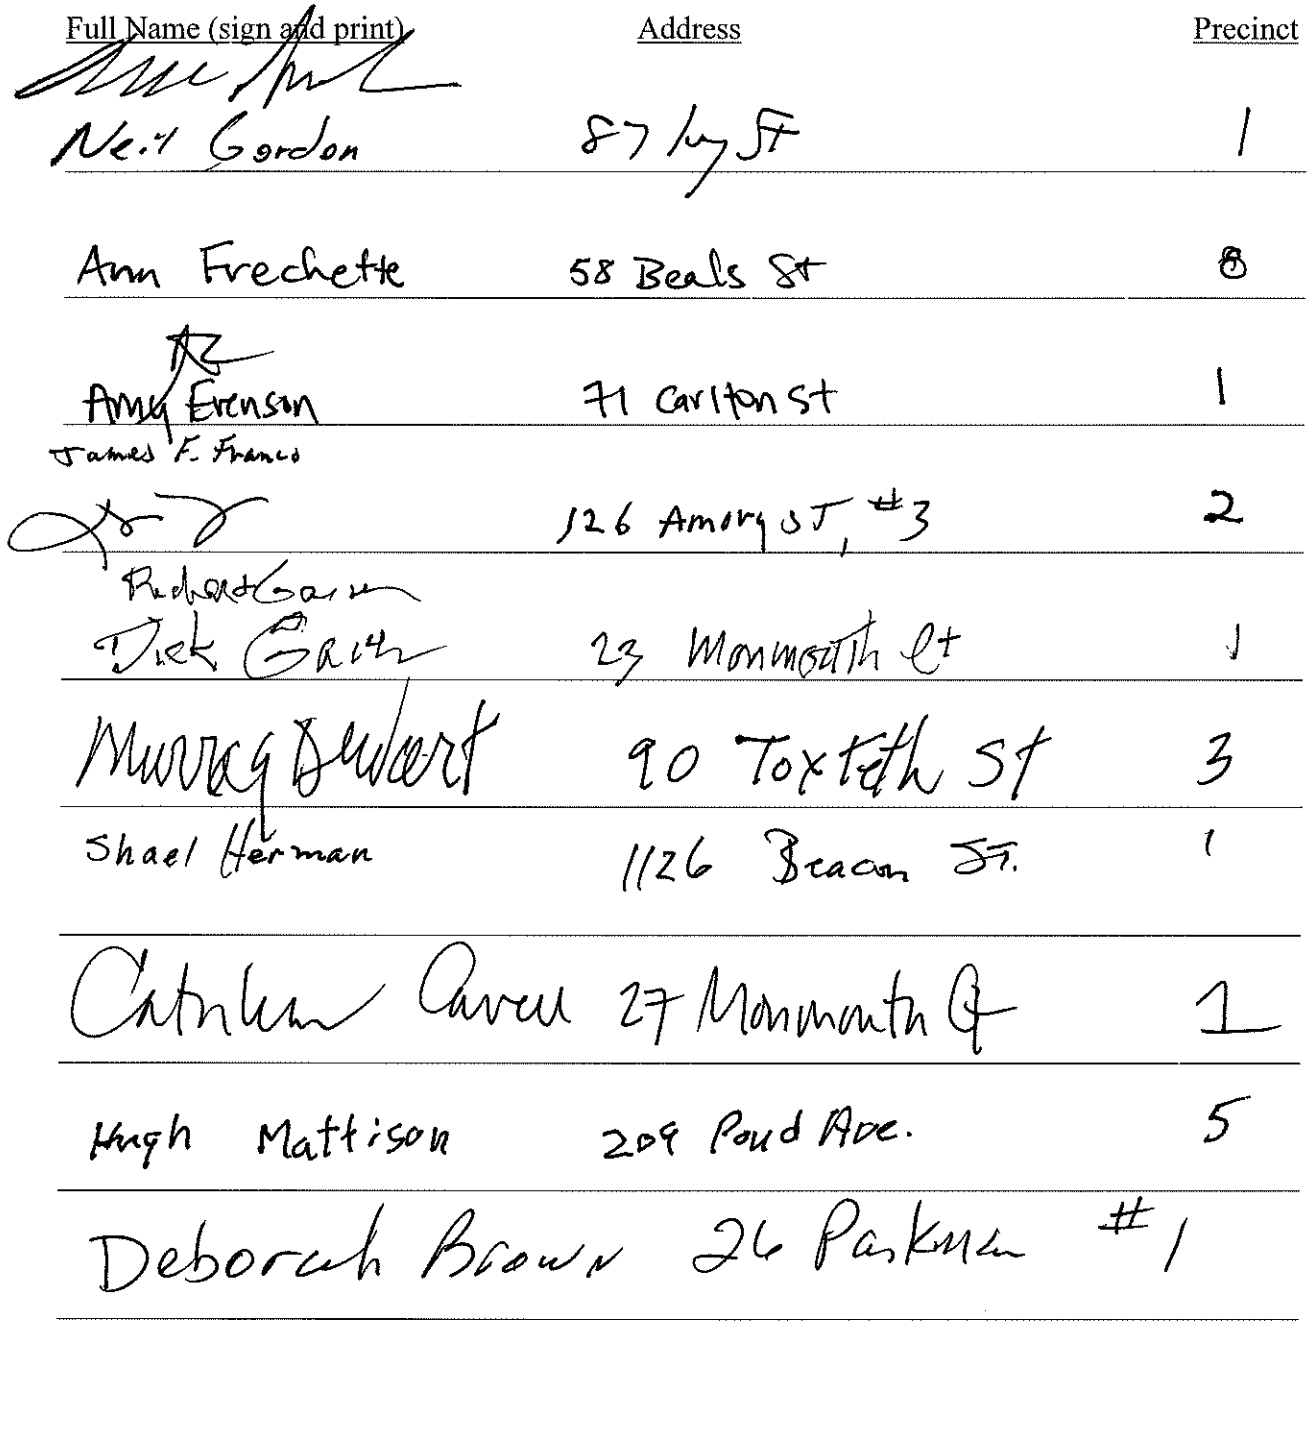 Full Name (sign and print) Address Precinct
Neil Gordon 87 Ivy St 1
Ann Frechette 58 Beals St 8
Amy Evenson 71 Carlton St 1
James F. Franco
126 Amory ST, #3 2
Richard
Dick 23 Monmouth Ct 1
Murray Dewart 90 Toxteth St 3
Shael Herman 1126 Beacon ST. 1
27 Monmouth Ct 1
Hugh Mattison 209 Pond Ave. 5
Deborah Brown 26 Parkman #1